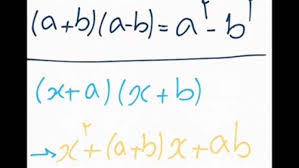 (a+b)(a-b)=a²-b²
(x+a)(x+b)
→x²+(a+b)x+ab